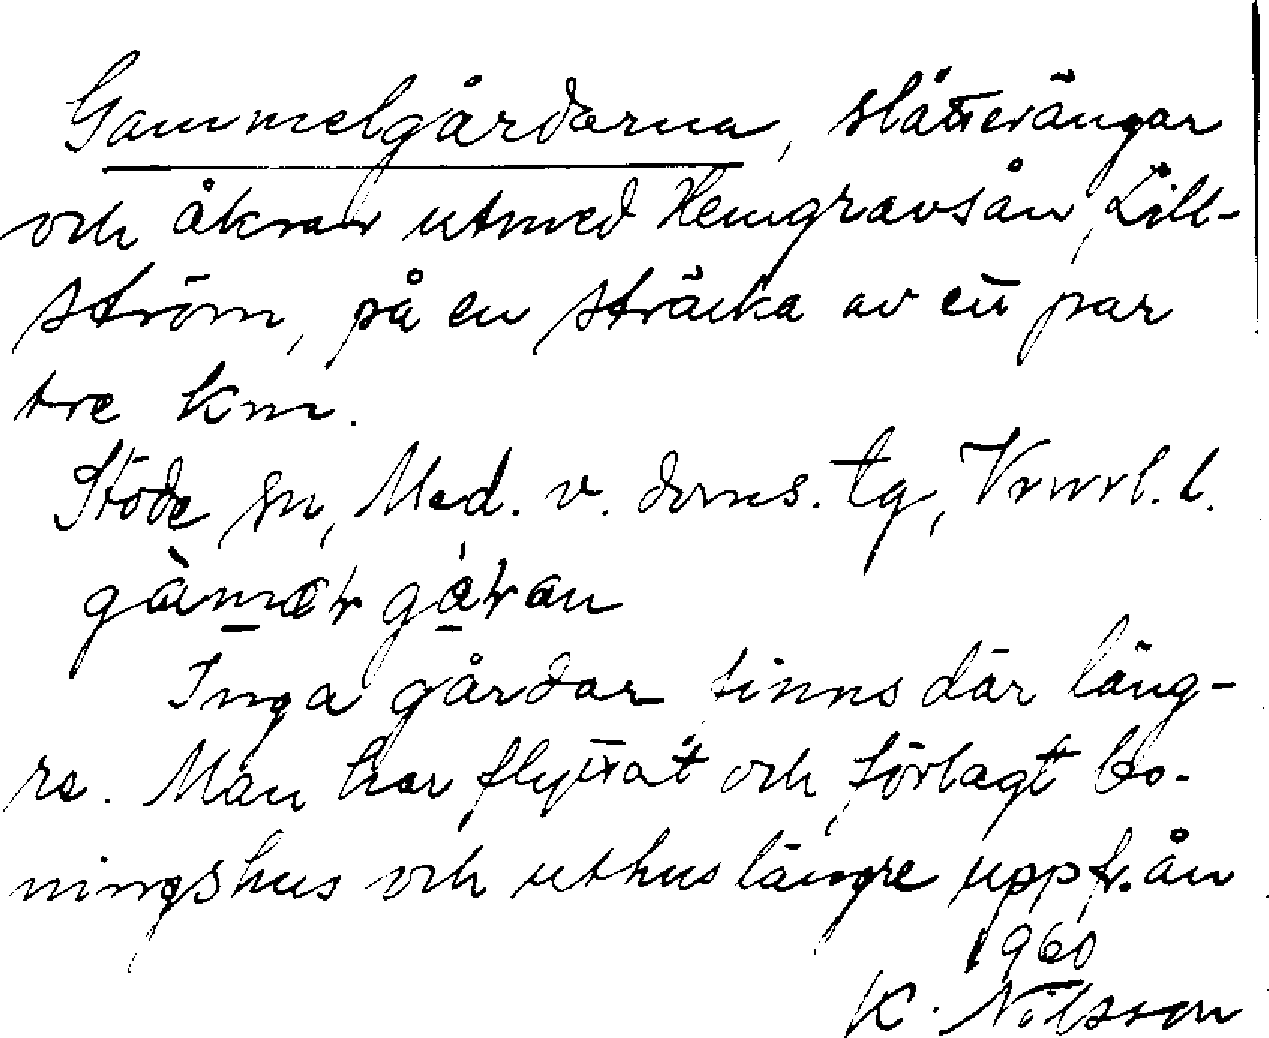 Gammelgårdarna, slåtterängar
och åkrar utmed Hemgravsån, Lill-
ström, på en sträcka av ett par
tre km.
Stöde sn, Med. v. doms. tg,
Inga gårdar finns där läng-
re. Man har flyttat och förlagt bo-
ningshus och uthus längre upp fr. ån
1960
K. Nilsson